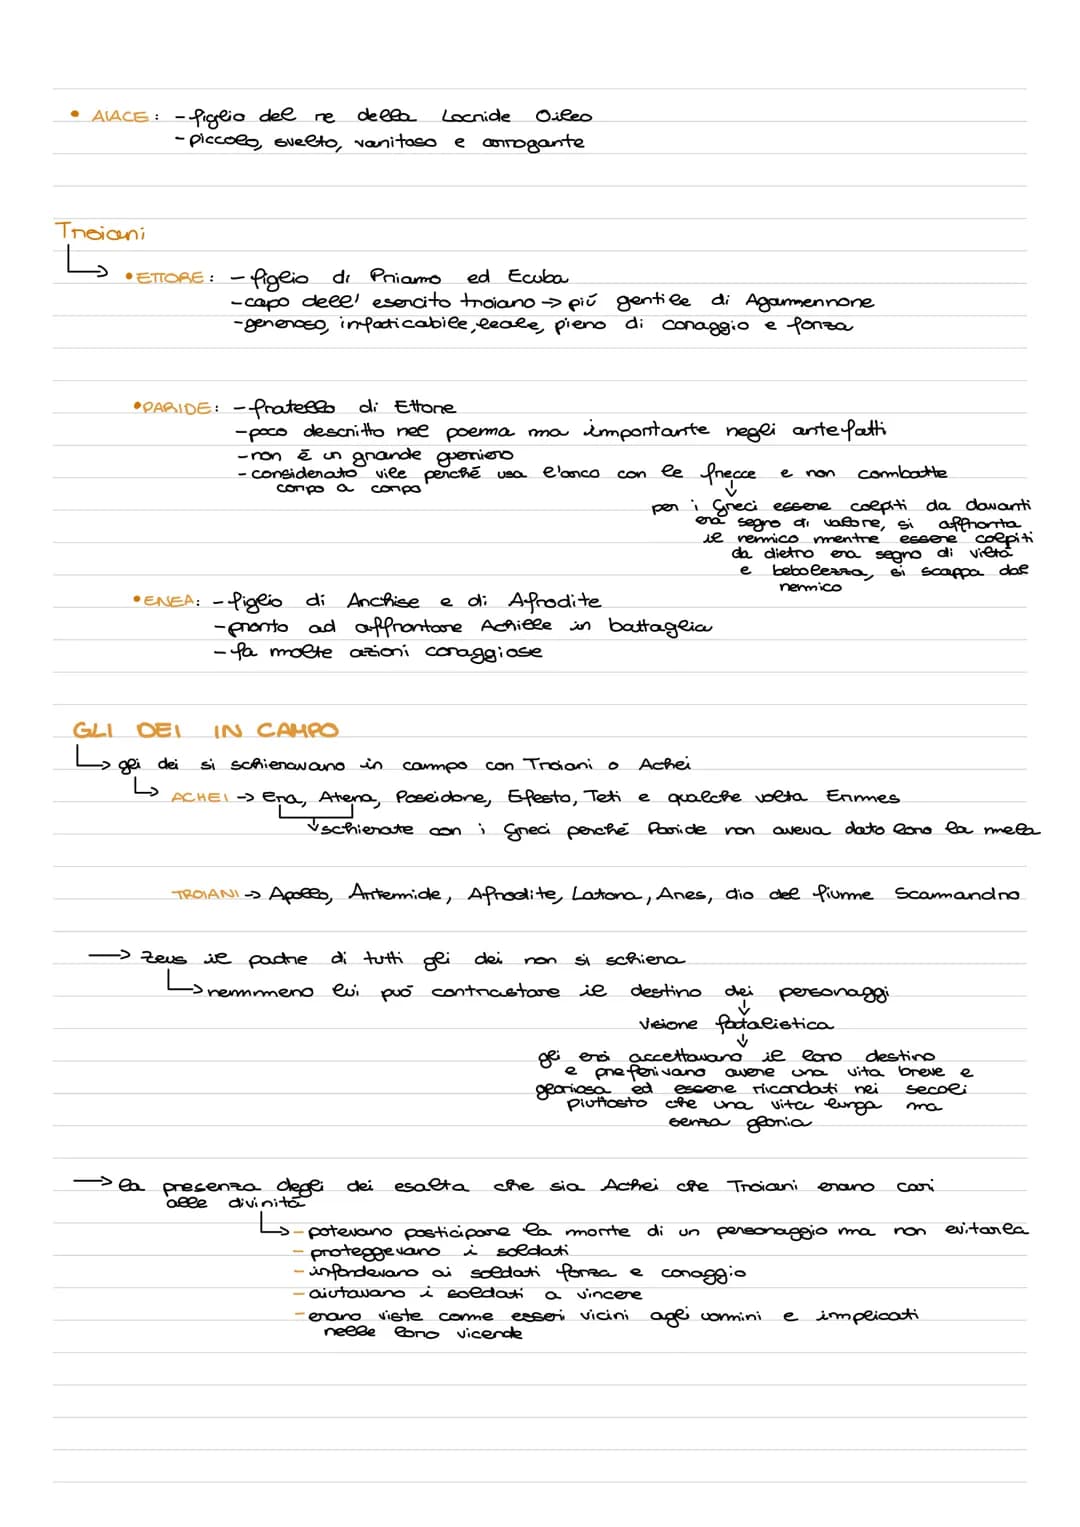 • AIACE: - figlio del re della Locride Oileo
- piccolo, svelto, vanitoso e arrogante
Troiani
• ETTORE: - figlio di Priamo ed Ecuba
- capo dell' esercito troiano → più gentile di Agammennone
- generoso, infaticabile, leale, pieno di coraggio e forza
• PARIDE: - fratello di Ettore
- poco descritto nel poema ma importante negli antefatti
- non è un grande guerriero
- considerato vile perché usa l'arco con le frecce e non combatte
corpo a corpo
per i Greci essere colpiti da davanti
era segno di valore, si affronta
il nemico mentre essere colpiti
da dietro era segno di viltà
e bebolezza, si scappa dal
nemico
• ENEA: - figlio di Anchise e di Afrodite
- pronto ad affrontare Achille in battaglia
- fa molte azioni coraggiose
GLI DEI IN CAMPO
↳ gli dei si schieravano in campo con Troiani o Achei
↳ ACHEI → Era, Atena, Poseidone, Efesto, Teti e qualche volta Ermes
↓ schierate con i Greci perché Paride non aveva dato loro la mela
TROIANI → Apollo, Artemide, Afrodite, Latona, Ares, dio del fiume Scamandro
→ Zeus il padre di tutti gli dei non si schiera
↳ nemmeno lui può contrastare il destino dei personaggi
↓
Visione fatalistica
↓
gli eroi accettavano il loro destino
e preferivano avere una vita breve e
gloriosa ed essere ricordati nei secoli
piuttosto che una vita lunga ma
senza gloria
→ la presenza degli dei esalta che sia Achei che Troiani erano cari
alle divinità
↳ - potevano posticipare la morte di un personaggio ma non evitarla
- proteggevano i soldati
- infondevano ai soldati forza e coraggio
- aiutavano i soldati a vincere
- erano viste come esseri vicini agli uomini e implicati
nelle loro vicende